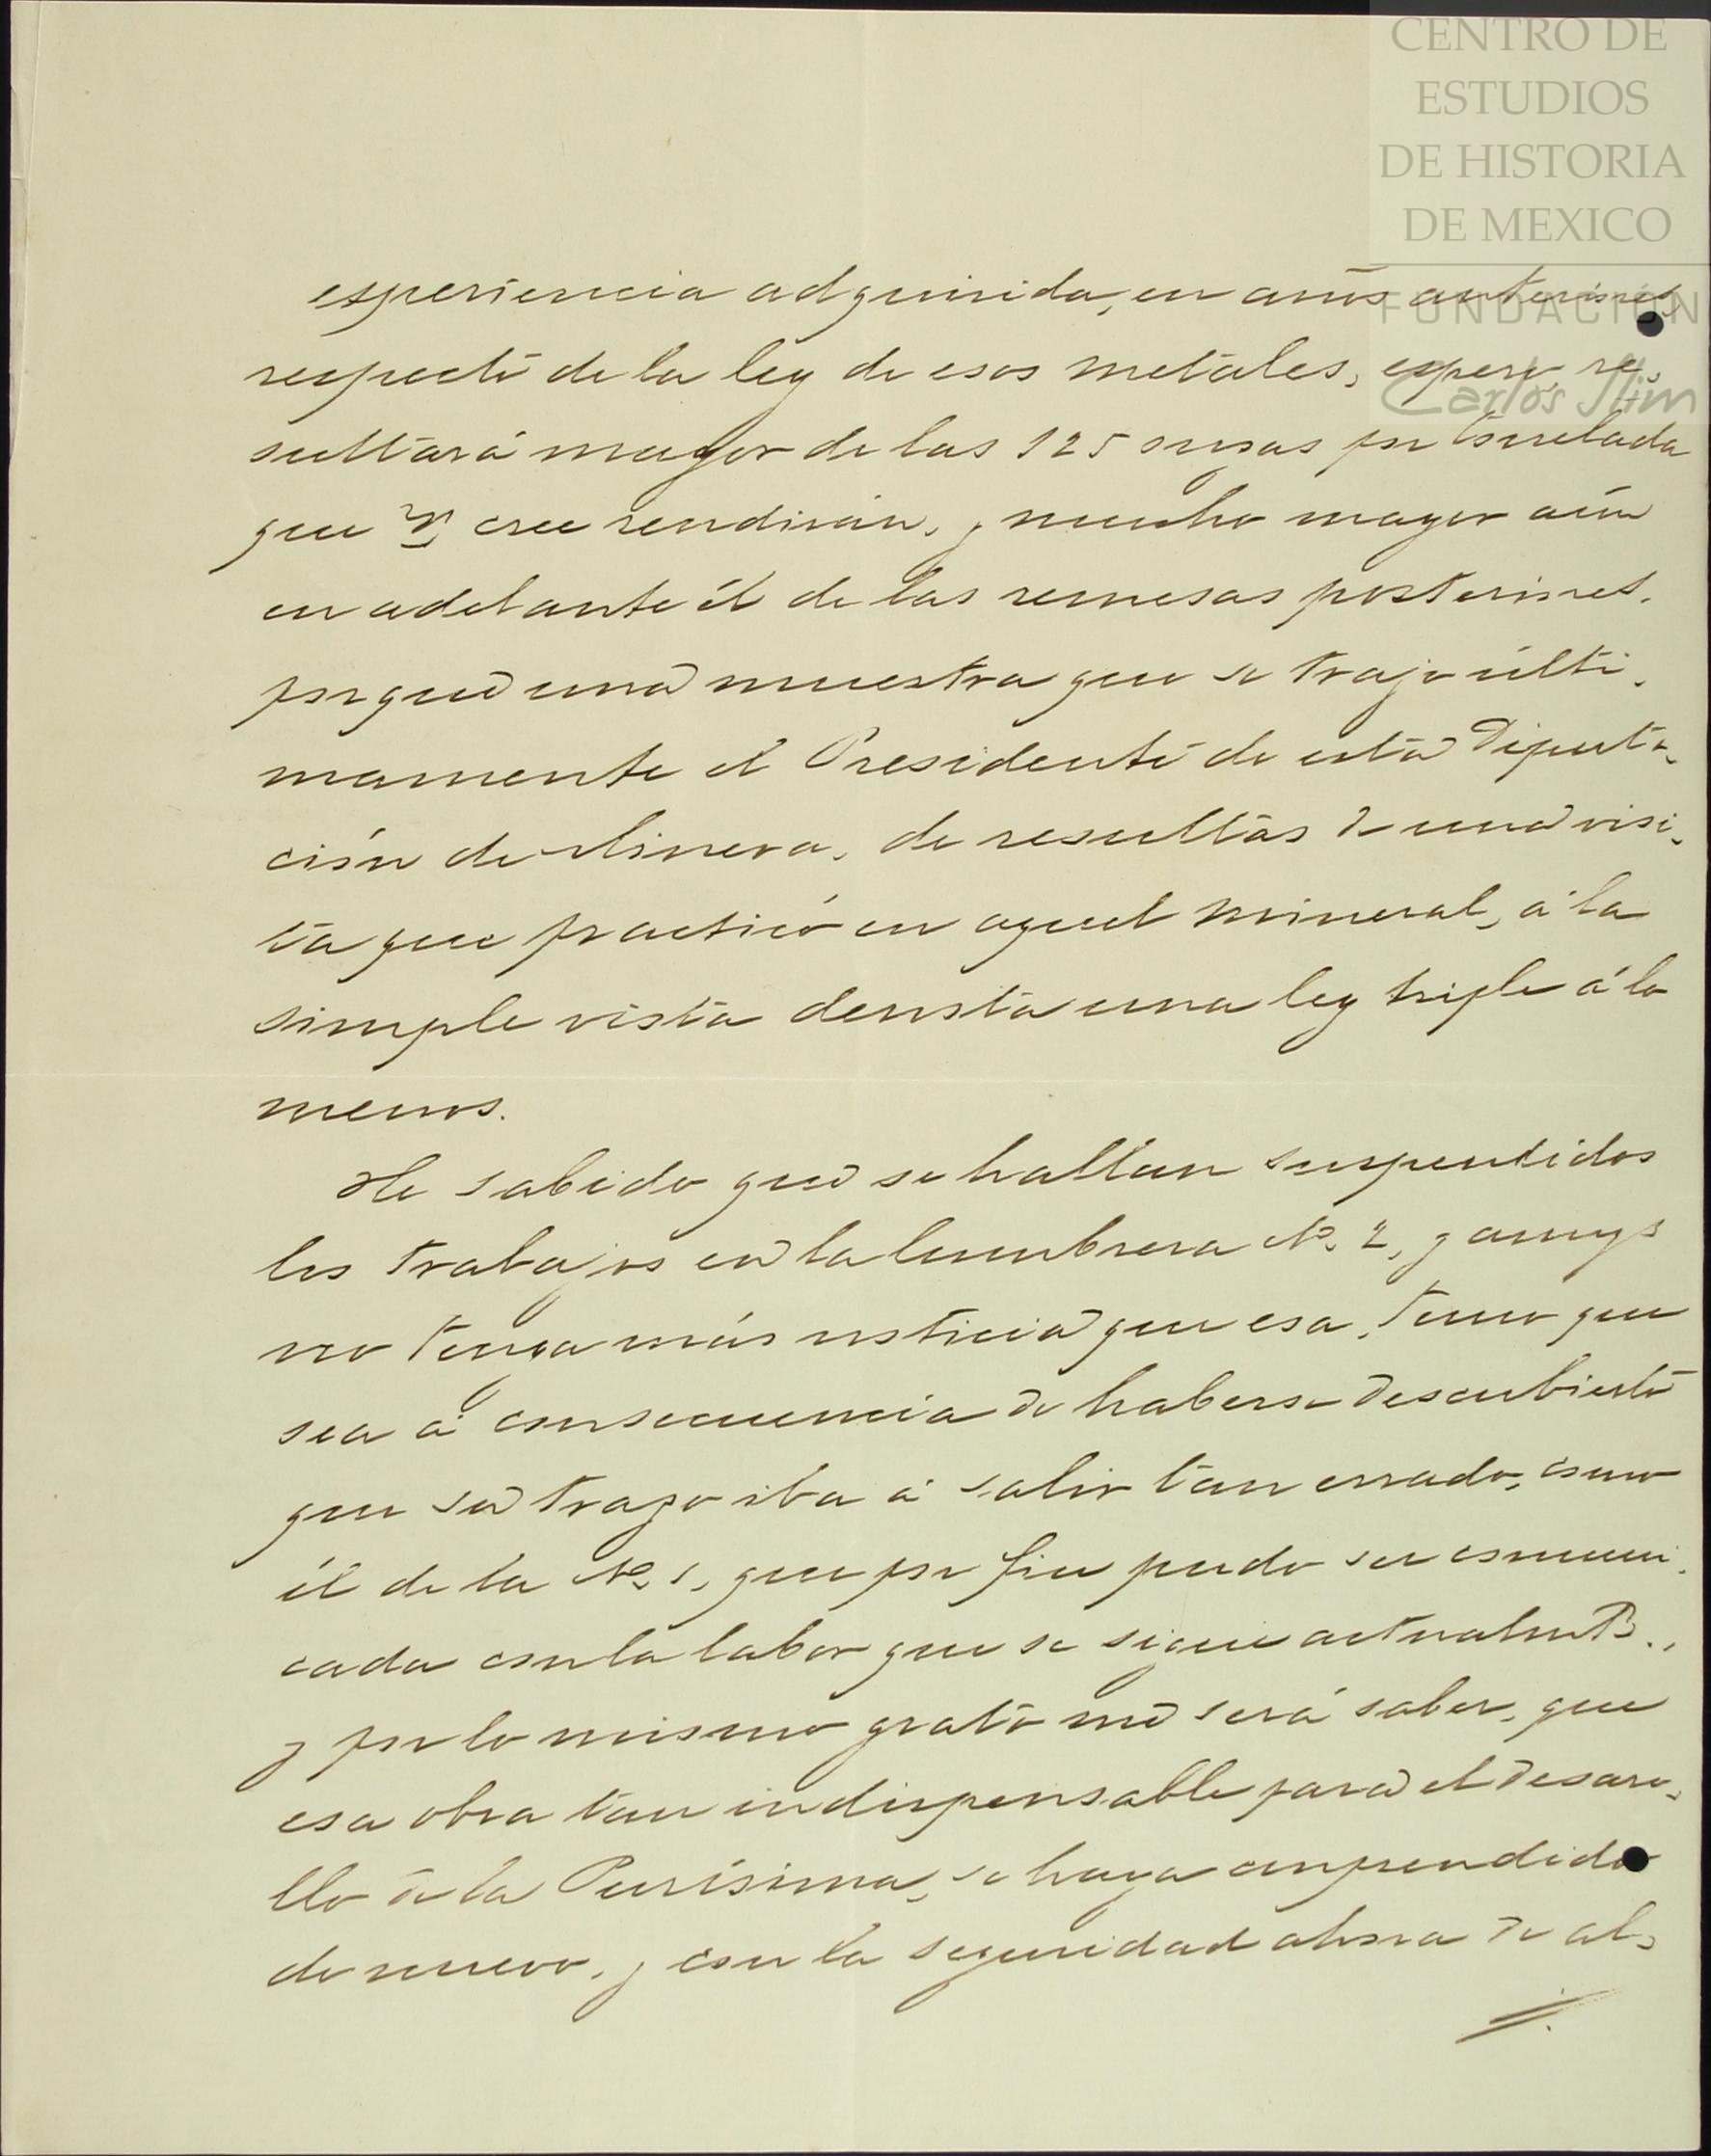 CENTRO DE
ESTUDIOS
DE HISTORIA
DE MEXICO
FUNDACIÓN
Carlos Slim
esperiencia adquirida, en años anteriores,
respecto de la ley de esos metales, espero, re-
sultará mayor de las 125 onzas por tonelada
que V, cree rendirán, y mucho mayor aún
en adelante él de las remesas posteriores,
porque una muestra que se trajo últi-
mamente el Presidente de esta Diputa-
ción de Minera, de resultas de una visi-
ta que practicó en aquel mineral, á la
simple vista denota una ley triple á lo
menos.
He sabido que se hallan suspendidos
los trabajos en la lumbrera No. 2, y aunqe
no tenga más noticia que esa, temo que
sea á consecuencia de haberse descubierto
que su trazo iba á salir tan errado, como
él de la No. 1, que por fin pudo ser comuni-
cada con la labor que se sigue actualmte.,
y por lo mismo grato me será saber, que
esa obra tan indispensable para el desarro-
llo de la Purísima, se haya emprendido
de nuevo, y con la seguridad ahora de al-
//.